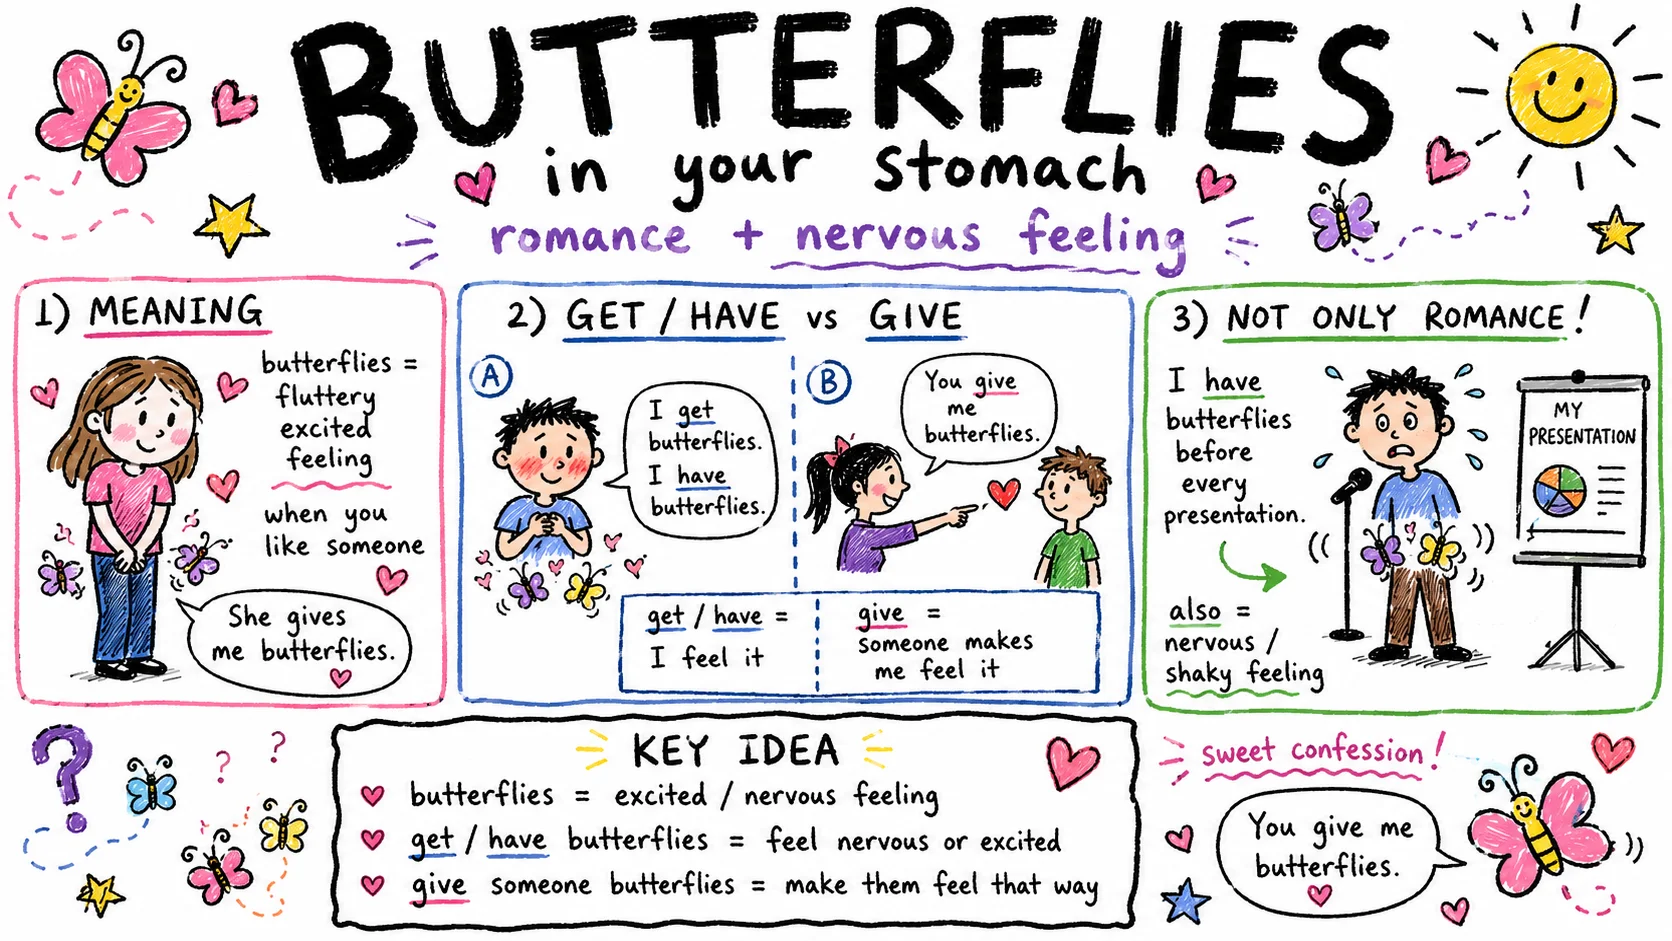 BUTTERFLIES
in your stomach
romance + nervous feeling
1) MEANING
butterflies =
fluttery
excited
feeling
when you
like someone
She gives
me butterflies.
2) GET / HAVE vs GIVE
A
I get
butterflies.
I have
butterflies.
B
You give
me
butterflies.
get / have =
I feel it
give =
someone makes
me feel it
3) NOT ONLY ROMANCE!
I have
butterflies
before
every
presentation.
also =
nervous /
shaky feeling
MY
PRESENTATION
?
?
?
KEY IDEA
butterflies = excited / nervous feeling
get / have butterflies = feel nervous or excited
give someone butterflies = make them feel that way
sweet confession!
You give me
butterflies.